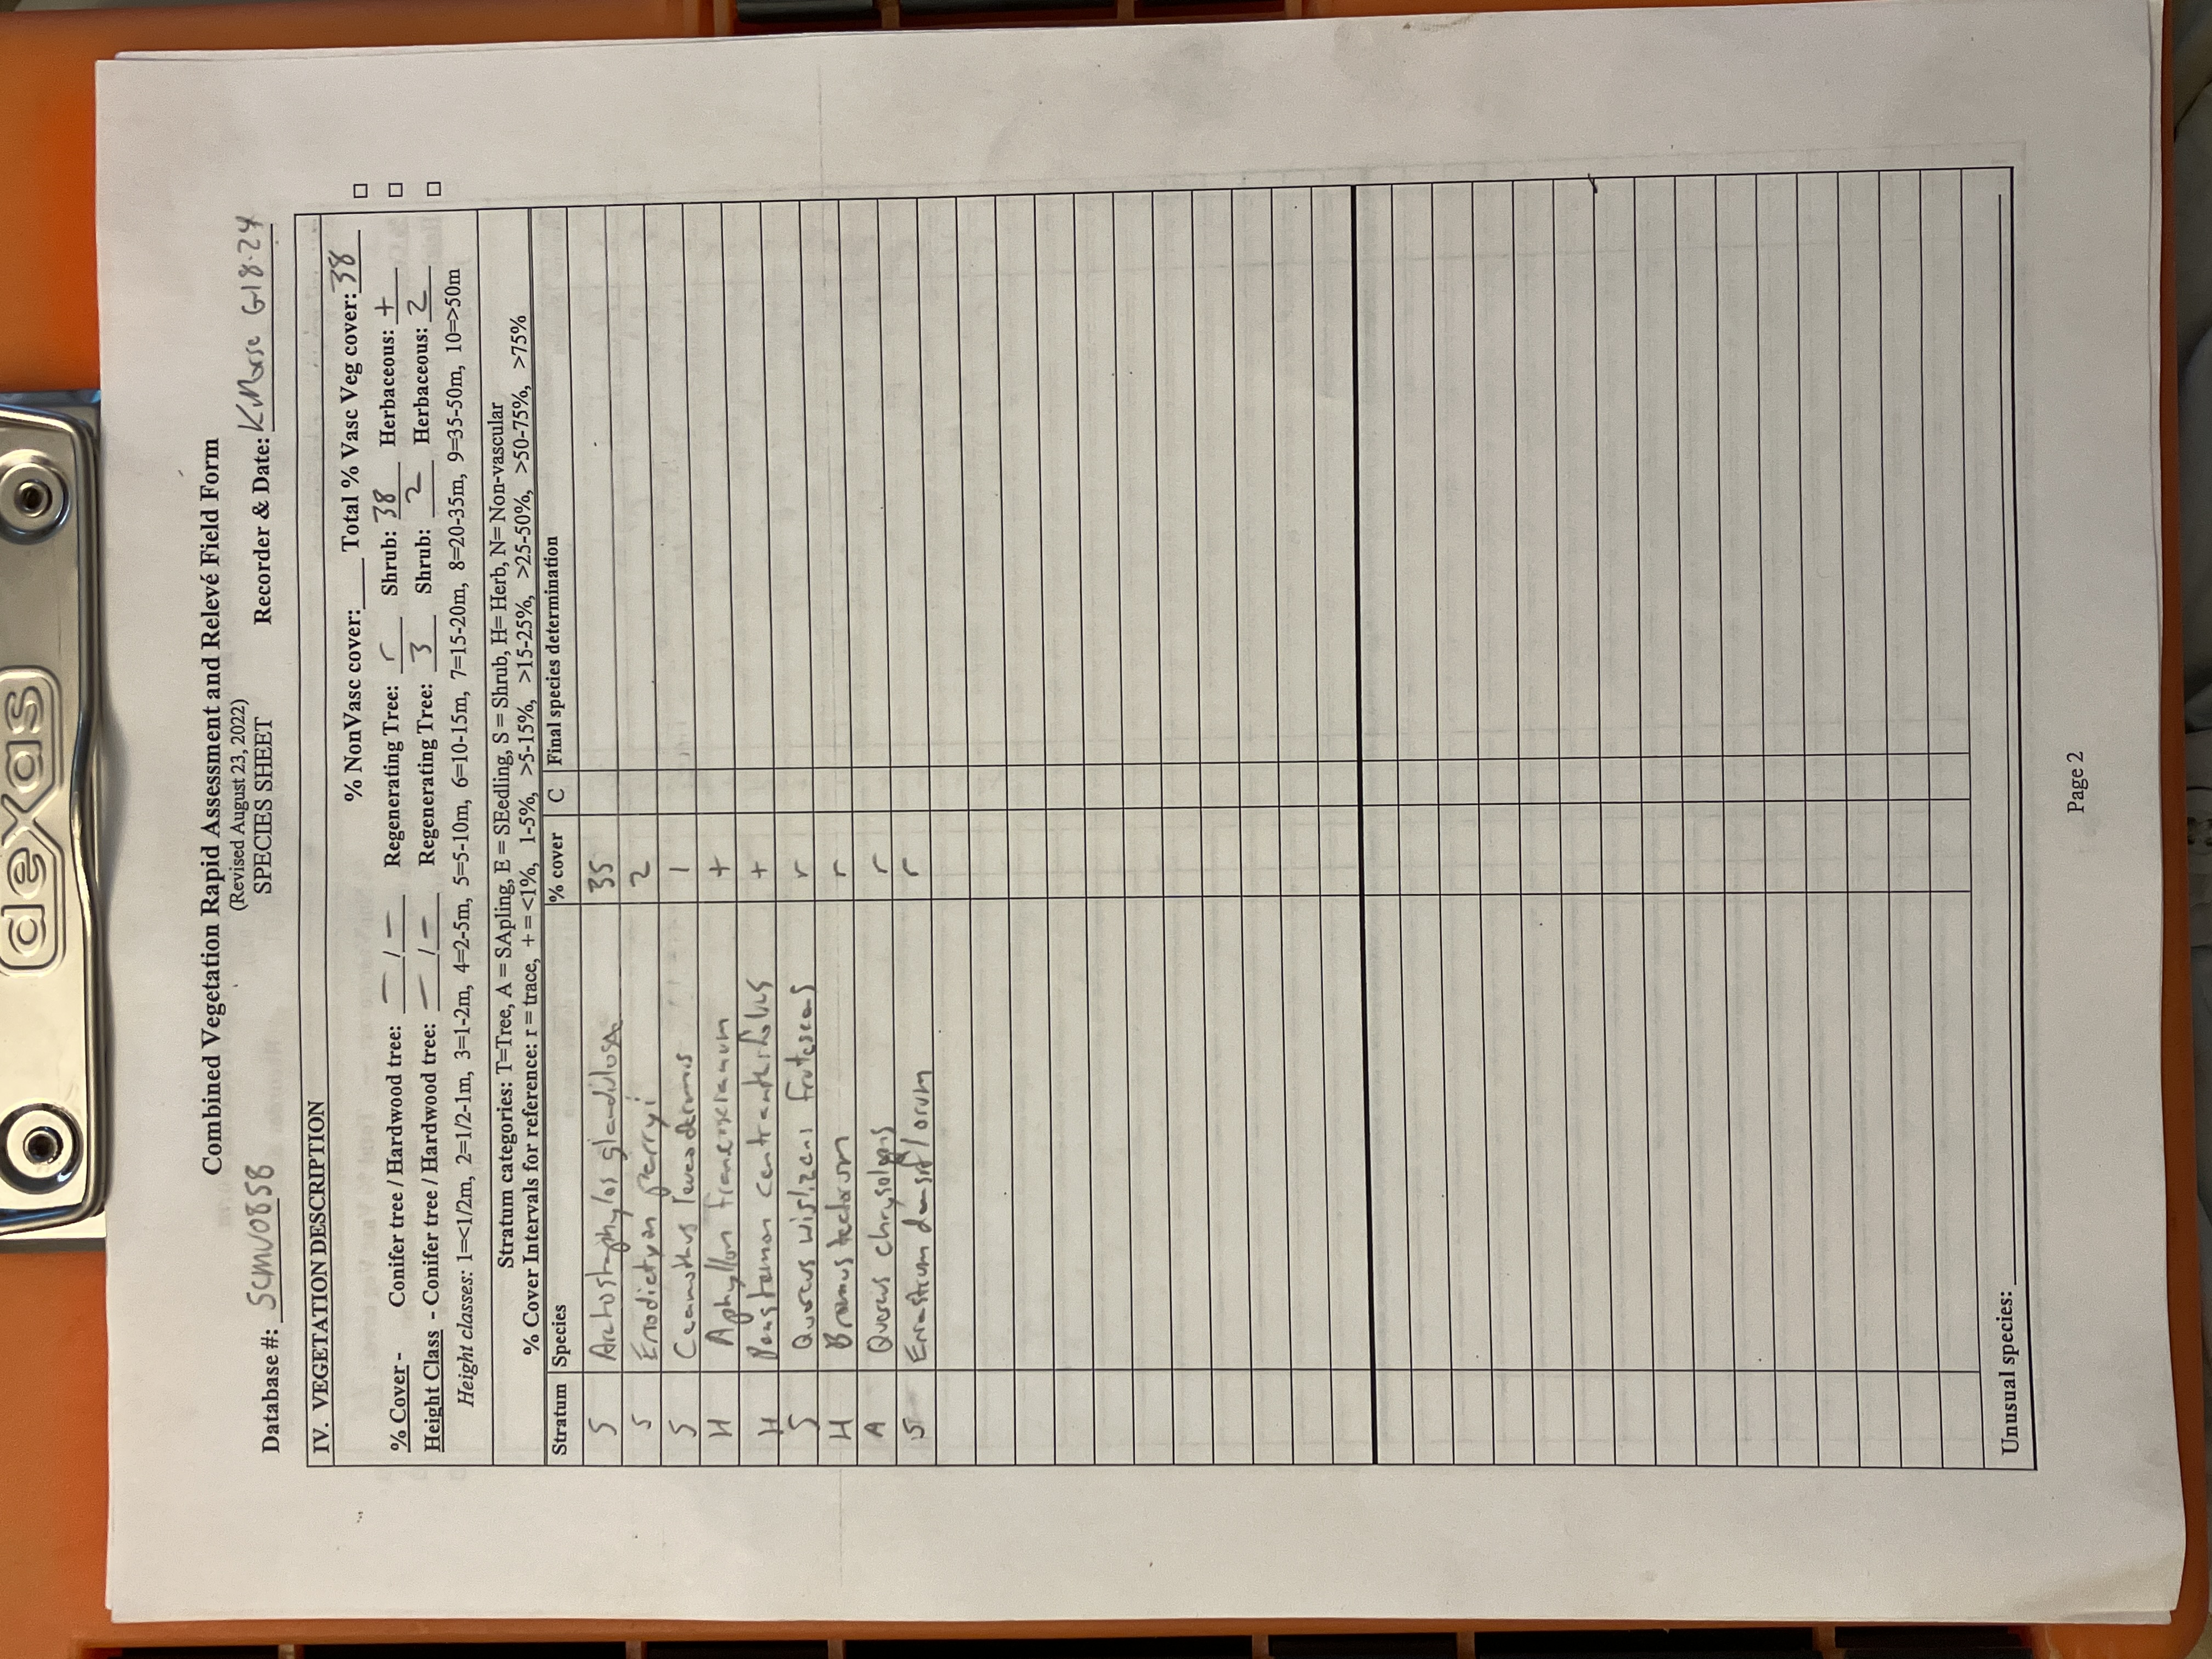 dexas
Combined Vegetation Rapid Assessment and Relevé Field Form
(Revised August 23, 2022)
SPECIES SHEET
Database #: SCMV0858 Recorder & Date: K.Morse 6-18-24
IV. VEGETATION DESCRIPTION
% NonVasc cover:____ Total % Vasc Veg cover: 38 □
% Cover - Conifer tree / Hardwood tree: — / — Regenerating Tree: r Shrub: 38 Herbaceous: + □
Height Class - Conifer tree / Hardwood tree: — / — Regenerating Tree: 3 Shrub: 2 Herbaceous: 2 □
Height classes: 1=<1/2m, 2=1/2-1m, 3=1-2m, 4=2-5m, 5=5-10m, 6=10-15m, 7=15-20m, 8=20-35m, 9=35-50m, 10=>50m
Stratum categories: T=Tree, A = SApling, E = SEedling, S = Shrub, H= Herb, N= Non-vascular
% Cover Intervals for reference: r = trace, + = <1%, 1-5%, >5-15%, >15-25%, >25-50%, >50-75%, >75%
Stratum Species % cover C Final species determination
S Arctostaphylos glandulosa 35
S Eriodictyon parryi 2
S Ceanothus leucodermis 1
H Aphyllon franciscanum +
H Penstemon centranthifolius +
S Quercus wislizeni frutescens r
H Bromus tectorum r
A Quercus chrysolepis r
S Eriastrum densiflorum r
Unusual species:
Page 2